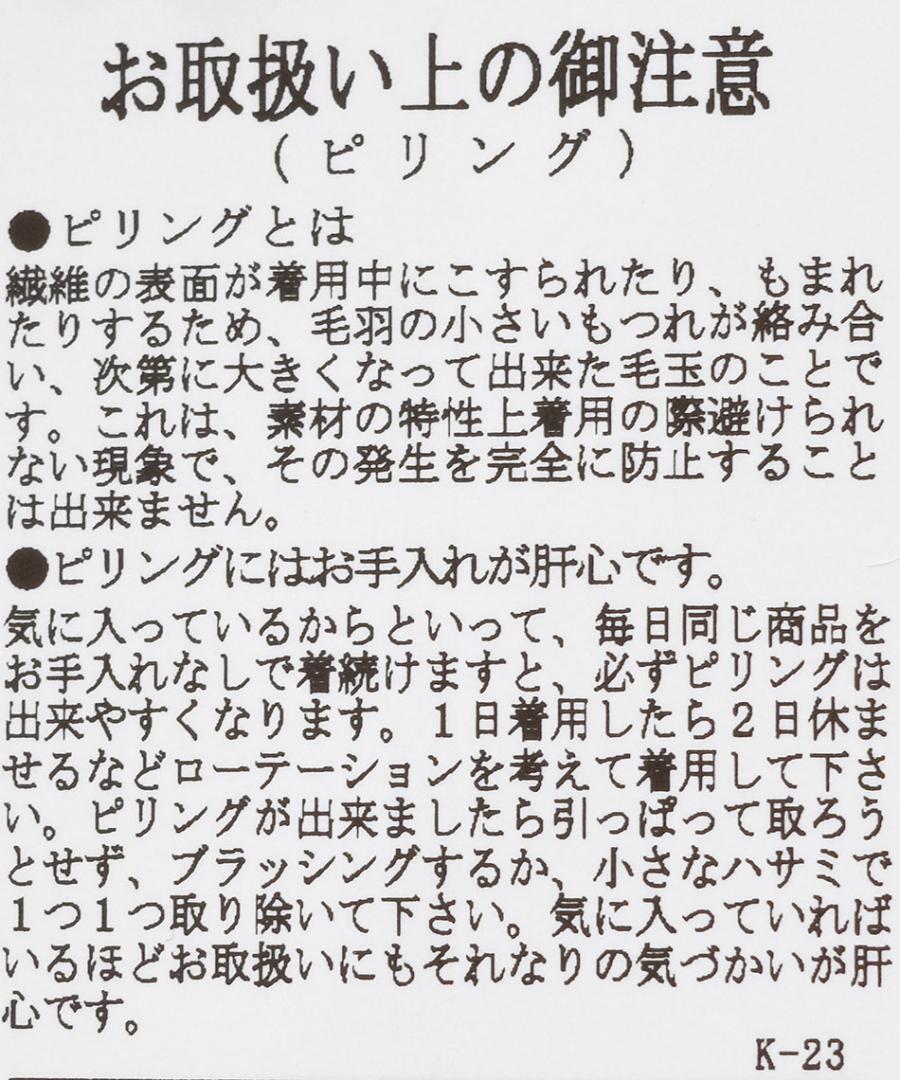 お取扱い上の御注意
(ピリング)
●ピリングとは
繊維の表面が着用中にこすられたり、もまれ
たりするため、毛羽の小さいもつれが絡み合
い、次第に大きくなって出来た毛玉のことで
す。これは、素材の特性上着用の際避けられ
ない現象で、その発生を完全に防止すること
は出来ません。
●ピリングにはお手入れが肝心です。
気に入っているからといって、毎日同じ商品を
お手入れなしで着続けますと、必ずピリングは
出来やすくなります。1日着用したら2日休ま
せるなどローテーションを考えて着用して下さ
い。ピリングが出来ましたら引っぱって取ろう
とせず、ブラッシングするか、小さなハサミで
1つ1つ取り除いて下さい。気に入っていれば
いるほどお取扱いにもそれなりの気づかいが肝
心です。
K-23